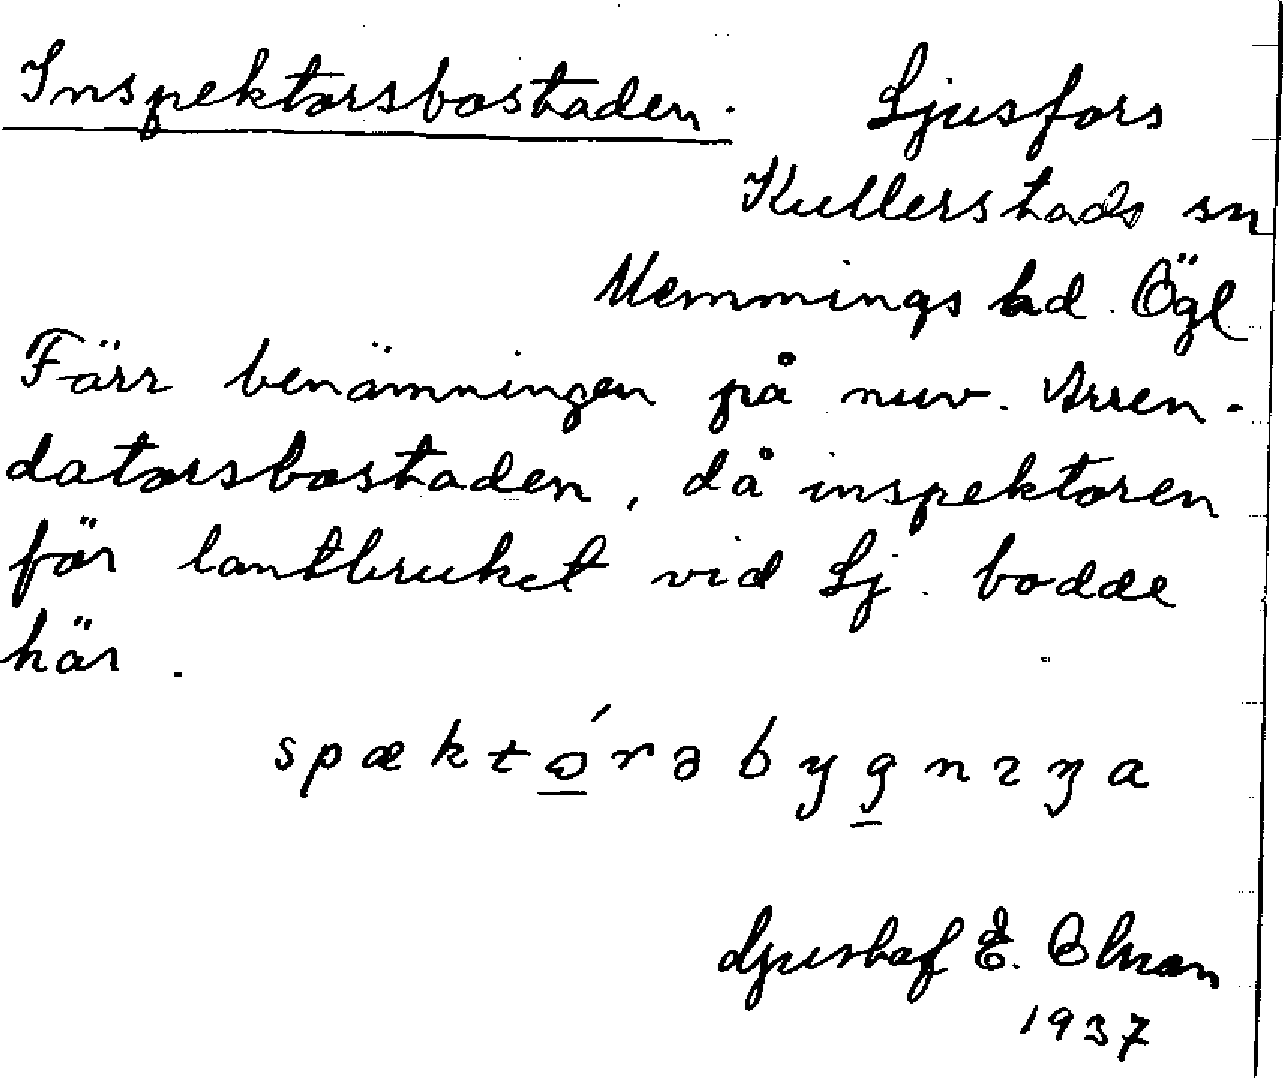 Inspektorsbostaden. Ljusfors
Kullerstads sn
Memmings hd. Ögl
Förr benämningen på nuv. Arren-
datorsbostaden, då inspektoren
för lantbruket vid Lj. bodde
här.
spæktó̲rəbyg̲nıŋa
Gustaf E.
1937